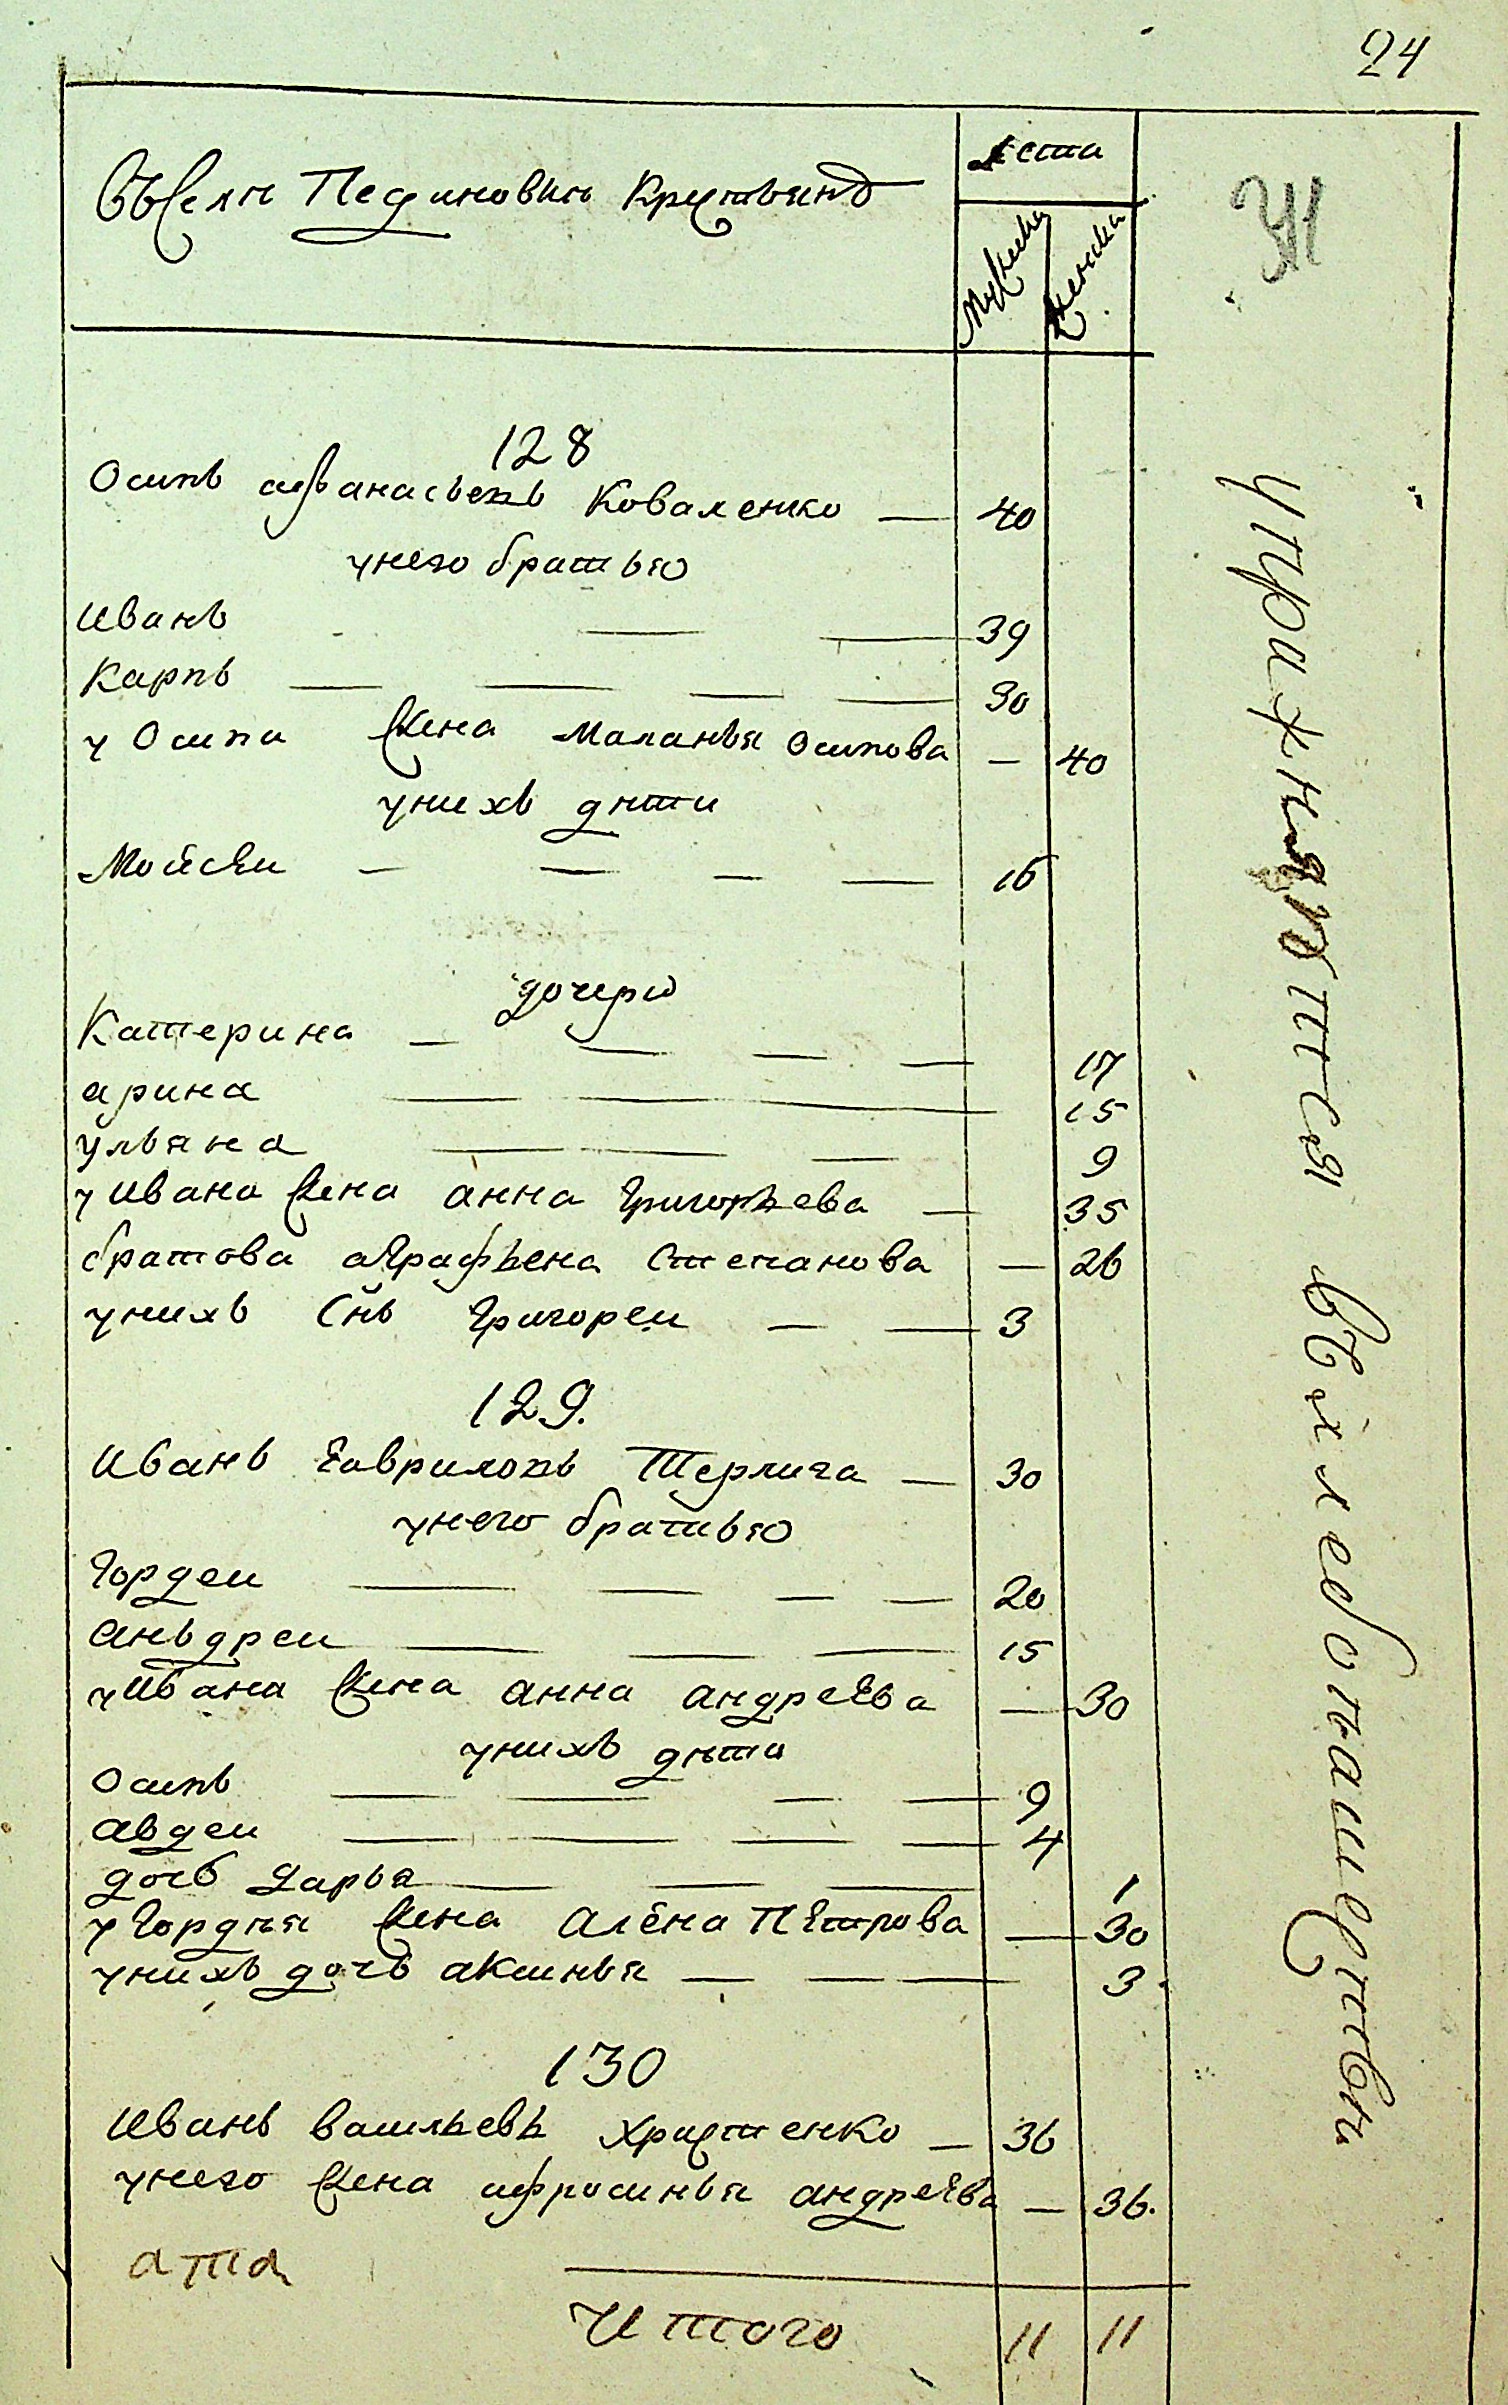 24
Въ селѣ Пединовки крестьянъ
лета
Мужеска
женска
128
Осипъ афанасьевъ Коваленко — 40
унего братью
Иванъ — — 39
Карпъ — — — — 30
у Осипа жена Маланья Осипова — 40
унихъ дѣти
Мойсеи — — — — 16
дочери
Катерина — — — — 17
арина — — — 15
ульяна — — — 9
у Ивана жена анна Григорьева — 35
братова аграфьена Степанова — 26
унихъ Снъ Григореи — — 3
129.
Иванъ Гавриловъ Терлига — 30
унего братью
Гордеи — — — — 20
аньдреи — — — 15
у Ивана жена анна андреева — 30
унихъ дѣти
Осипъ — — — — 9
авдеи — — — — 4
дочь дарья — — — 1
у Гордѣя жена алёна Петрова — 30
унихъ дочь аксинья — — — 3
130
Иванъ васильевъ Христенко — 36
унего жена афросинья андреева — 36.
Итого 11 11
упражняются въ хлебопашестве